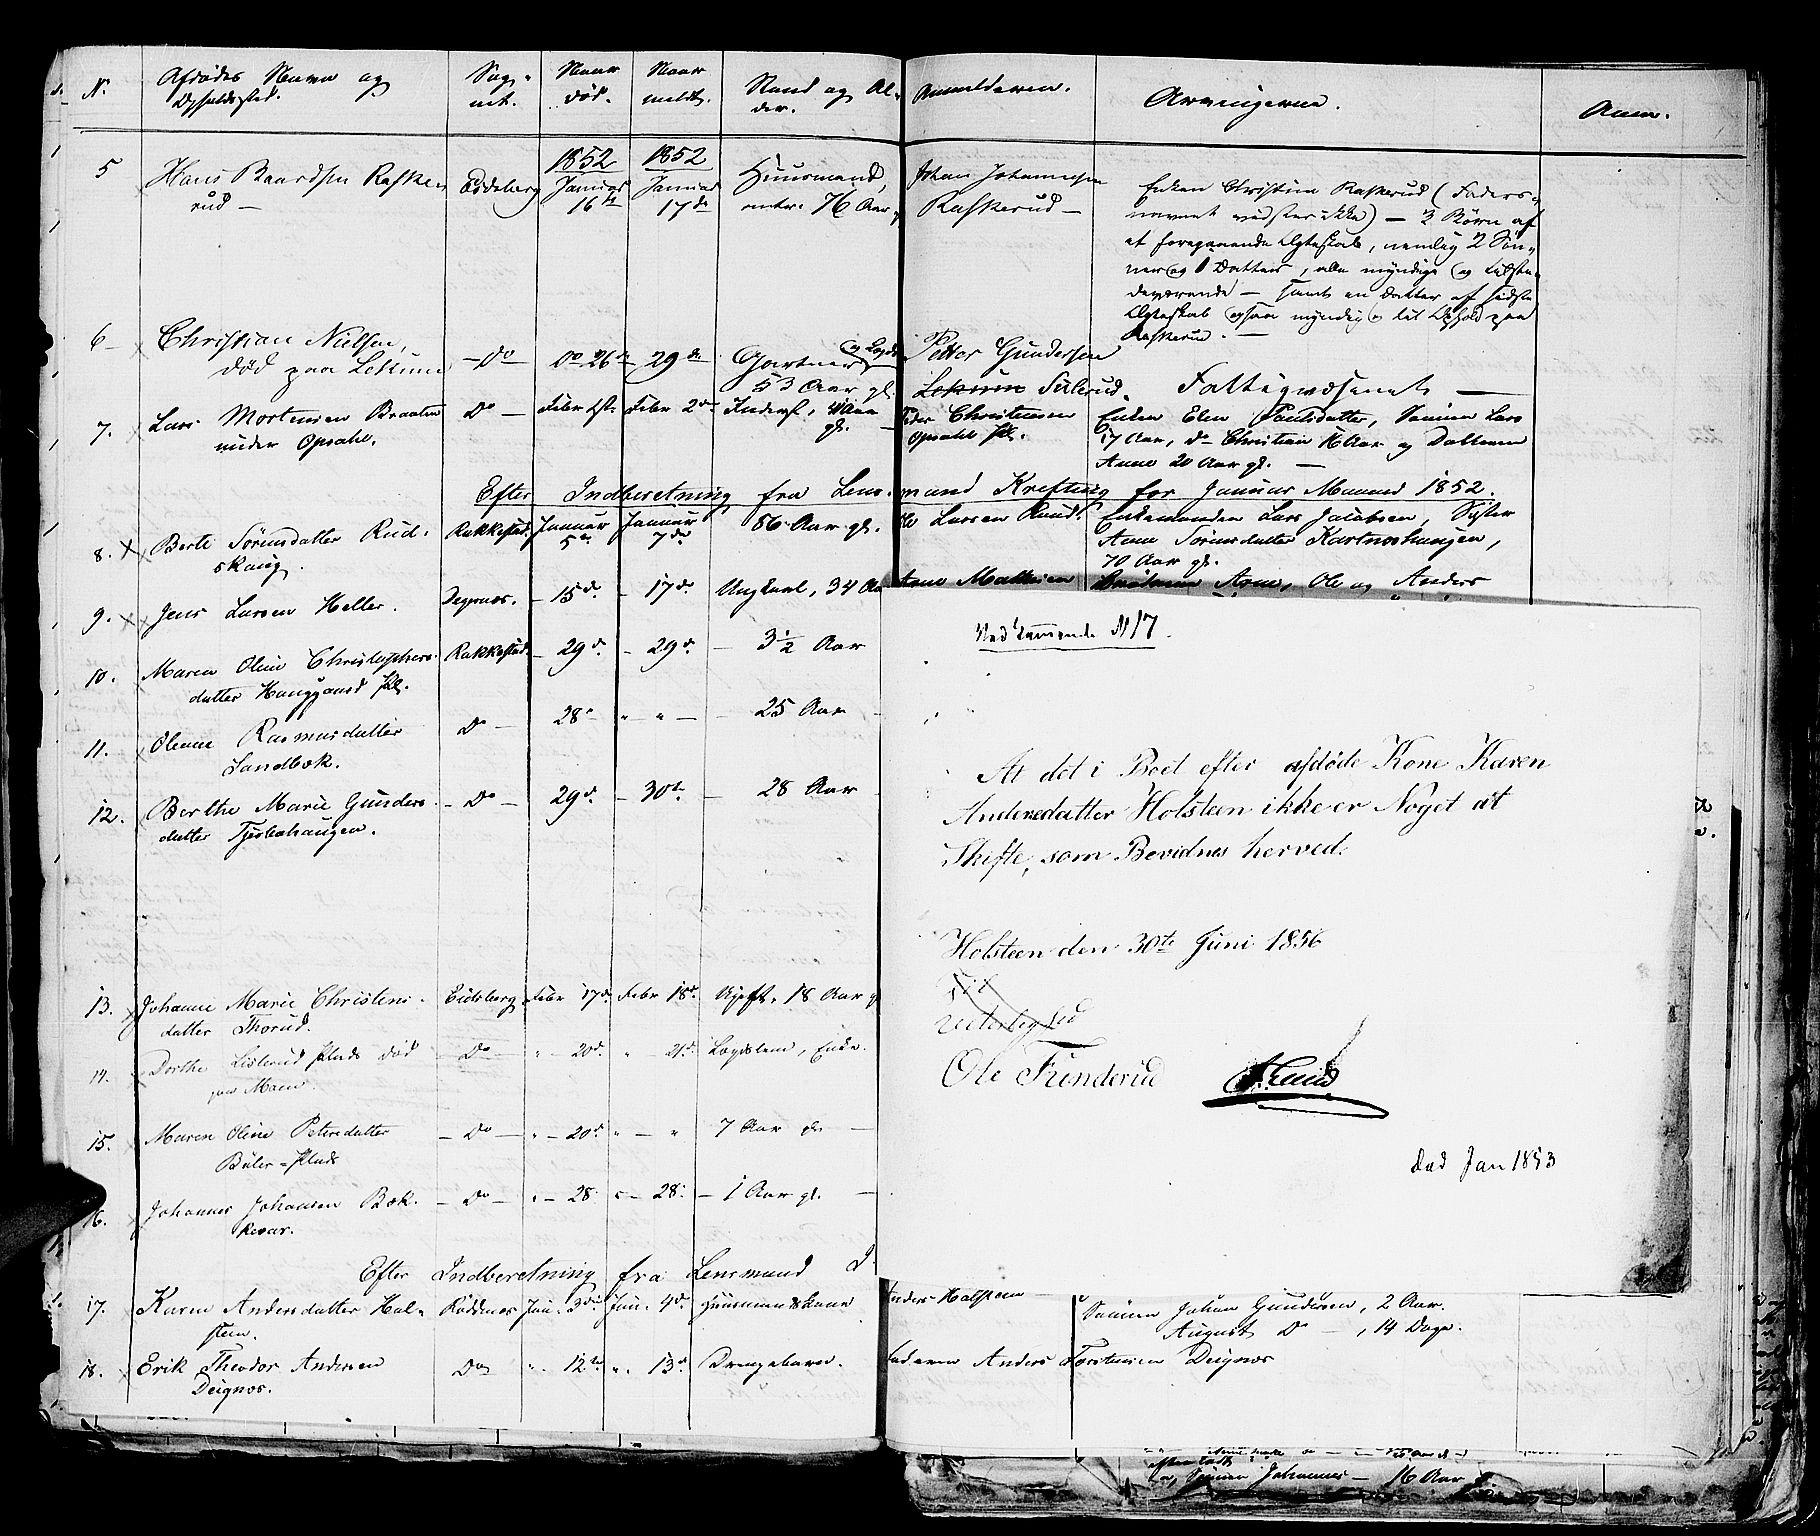 No. Afdødes Navn og Opholdssted. Sognet. Naar død. Naar meldt. Stand og Alder. Anmelderen. Arvingerne. Anm.
1852 1852
5 Hans Baardsen Rasken
rud —
Eidsberg Januar 16de Januar 17de
Huusmand,
76 Aar
Johan Johannesen
Raskerud —
Enken Christine Raskerud (Faders-
navnet vidstes ikke) — 3 Børn af
et foregaaende Ægteskab, nemlig 2 Søn-
ner og 1 Datter, alle myndige og tilste-
deværende — samt en Datter af sidste
Ægteskab ogsaa myndig
Raskerud. —
6 — Christian Nielsen,
død paa Lekum
— Do Do 26de — 29de Gartner og Lægds
53 Aar gl.
Petter Gundersen
Lekum Sulerud. Fattigvæsenet —
7. Lars Mortensen Braaten
under Opsahl.
Do — Febr 1ste Febr 2den Inderst,
gl. —
Peder Christensen
Opsahl Pl.
Enken Elen Poulsdatter, Sønnen Lars
17 Aar, do Christian 12 Aar og Datteren
Anne 20 Aar gl. —
Efter Indberetning fra Lens- mand Krefting for Januar Maaned 1852.
8. Berte Sørensdatter Rud-
skaug.
Rakkestad. Januar 5te Januar 7de 86 Aar gl. Ole Larsen Ruud
Enkemanden Lars Jacobsen, Syster
Anne Sørensdatter Kartnoshaugen,
70 Aar gl.
9. Jens Larsen Heller. Degernæs. — 15de — 17de Ungkarl, 34 Aar Arne Mathisen Brødrene Arne, Ole og Anders
10. Maren Oline Christophers-
datter Haugsand Pl.
Rakkestad — 29de — 29de — 3 1/2 Aar
11. Oleane Rasmusdatter
Sandbæk.
Do — 28de " " — 25 Aar —
12. Berthe Marie Gunders-
datter Tjerbohaugen.
— Do — 29de — 30te — 28 Aar
13. Johanne Marie Christens-
datter Thorud.
Eidsberg. Febr 17de Febr 18de Ugift. 18 Aar g
14. Dorthe Listerud Plads død
paa Moen.
— Do — " — 20de " — 21de Lægdslem, Enke.
15. Maren Oline Petersdatter
Buler-Plads
— Do — " — 20de " — " 7 Aar do —
16. Johannes Johansen Bæk-
kevar.
— Do — " — 28 — 28 — 1 Aar gl. —
Efter Indberetning fra Lensmand
17. Karen Andersdatter Hol-
steen.
Røddenes Jan. 3die Jan. 4de Huusmandskone Anders Holsteen
Sønnen Johan Gundersen, 2 Aar.
August Do — , 14 Dage.
18. Erik Theodor Andersen
Deignæs.
Do " 12te " 13de Drengebarn. Faderen Anders Torstensen Deignæs
Vedkommende N 17.
At det i Boet efter afdøde Kone Karen
Andersdatter Holsteen ikke er Noget at
Skifte, som Bevidnes herved.
Holsteen den 30te Juni 1856
Til
Ole Funderud
død Jan 1853
Sønnen Johannes — 16 Aar